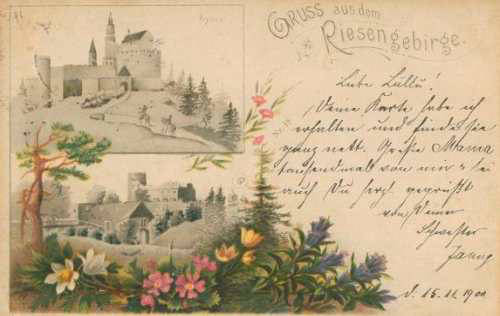 GRUSS aus dem
Riesengebirge.
Liebe Lullu!
Deine Karte habe ich
erhalten und finde sie
ganz nett. Grüße Mama
tausendmal von mir & sei
auch Du herzl. gegrüßt
von Deiner
Schwester
d. 15.11.1900